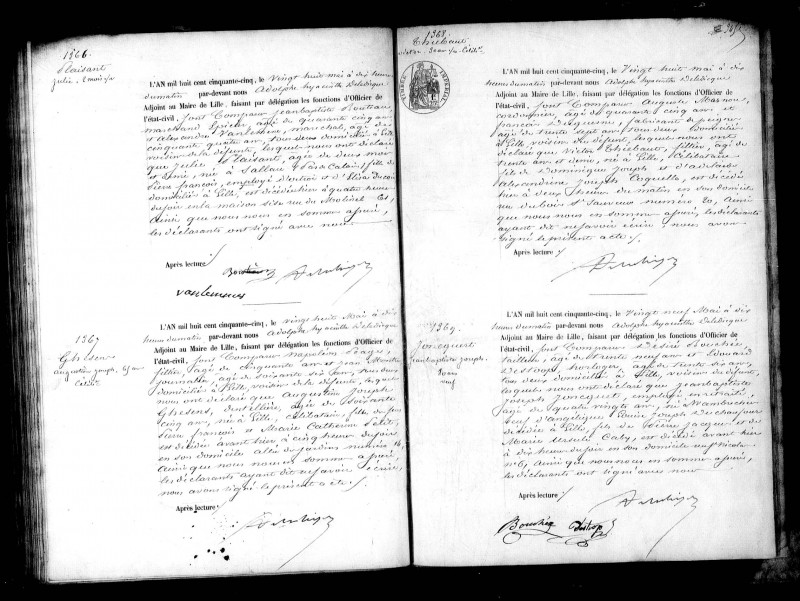 1366
Plaisant
Julie, 2 mois ½
L'AN mil huit cent cinquante-cinq, le vingt huit mai à dix heures
du matin par-devant nous Adolphe hyacinthe Delebecque
Adjoint au Maire de Lille, faisant par délégation les fonctions d'Officier de
l'état-civil, sont Comparus Jeanbaptiste
marchand Epicier, agé de quarante cinq ans
et Alexandre Vanlemmens, marechal, agé de
cinquante quatre ans, tous deux domiciliés à Lille
voisins de la défunte, lesquels nous ont déclaré
que Julie Plaisant, agée de deux mois
et demi, née à Sallau (Pas de Calais), fille de
françois, employé d'octroi et d'Elisa
domiciliés à Lille, est décédée hier à quatre heures
du soir en la maison sise rue du Molinel
ainsi que nous nous en sommes assuré,
les déclarants ont signé avec nous.
Après lecture /
1367
Ghesens
augustine joseph, 65 ans
Célib.re
L'AN mil huit cent cinquante-cinq, le vingt huit Mai à dix
heures du matin par-devant nous Adolphe hyacinthe Delebecque
Adjoint au Maire de Lille, faisant par délégation les fonctions d'Officier de
l'état-civil, sont Comparus Napoléon
filtier, agé de cinquante ans et
journalier, agé de soixante six ans, tous deux
domiciliés à Lille, voisins de la défunte, lesquels
nous ont déclaré que augustine Joseph
Ghesens, dentellière, agée de soixante
cinq ans, née à Lille, célibataire, fille de feus
Pierre françois et Marie Catherine Petit,
est décédée avant hier à cinq heures du soir
en son domicile allée des jardins numéro 14,
ainsi que nous nous en sommes assuré,
les déclarants ayant dit ne savoir écrire,
nous avons signé le présent acte /.
Après lecture /
1368
Thiébaut
victor, 30 ans ½ Célib.re
TIMBRE IMPERIAL
L'AN mil huit cent cinquante-cinq, le Vingt huit mai à dix
heures du matin par-devant nous Adolphe hyacinthe Delebecque
Adjoint au Maire de Lille, faisant par délégation les fonctions d'Officier de
l'état-civil, sont Comparus Auguste
cordonnier, agé de quarante cinq ans et
françois Desquesnes, fabricant de peignes
agé de trente sept ans, tous deux Domiciliés
à Lille, voisins du défunt, lesquels nous ont
déclaré que Victor Thiébaut, filtier, agé de
trente ans et demi, né à Lille, Célibataire
fils de Dominique Joseph et d'adélaïde
alexandrine Joseph Coquelle, est décédé
hier à deux heures du matin en son domicile
rue du bois St Sauveur numéro 20, ainsi
que nous nous en sommes assuré, les déclarants
ayant dit ne savoir écrire, nous avons
signé le présent acte /.
Après lecture /
1369
Joncquert
Jeanbaptiste joseph
80 ans
veuf
L'AN mil huit cent cinquante-cinq, le Vingt neuf Mai à dix
heures du matin par-devant nous Adolphe hyacinthe Delebecque
Adjoint au Maire de Lille, faisant par délégation les fonctions d'Officier de
l'état-civil, sont Comparus Désiré Bouchée,
tailleur, agé de trente neuf ans et Edouard
Destoop, horloger, agé de trente six ans,
tous deux domiciliés à Lille, voisins du défunt,
lesquels nous ont déclaré que Jeanbaptiste
Joseph Joncquert, employé en retraite,
agé de quatre vingts ans, né à Wambrechies
veuf d'angélique Louise Joseph
décédée à Lille, fils de Pierre Jacques et de
Marie Ursule Caby, est décédé avant hier
à dix heures du soir en son domicile rue St Nicolas
n° 6, ainsi que nous nous en sommes assuré,
les déclarants ont signé avec nous
Après lecture /
Bouchée Destoop